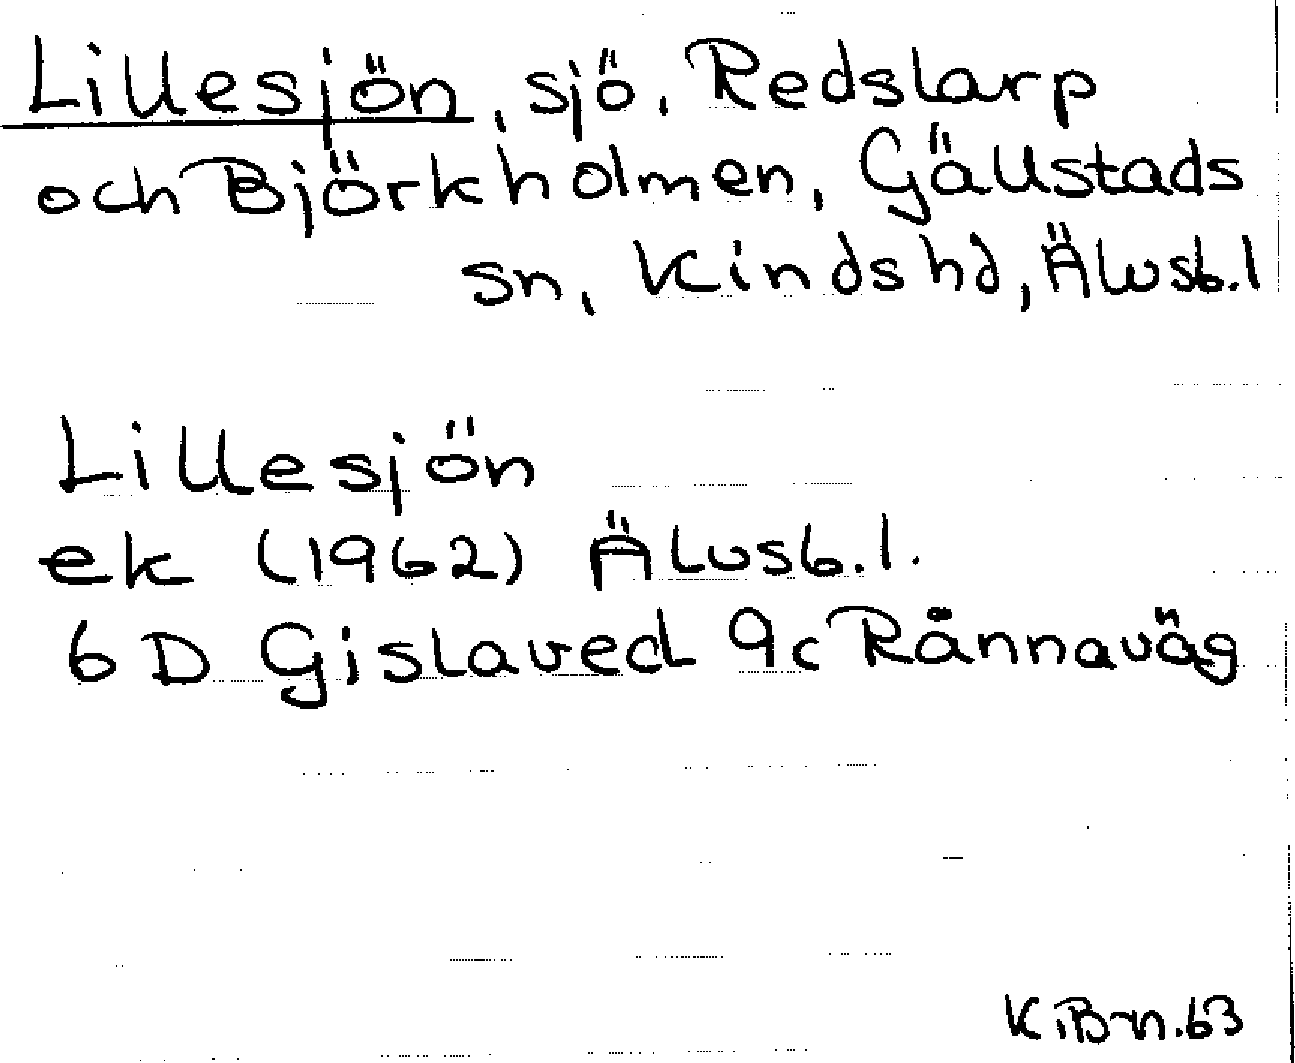 Lillesjön, sjö, Redslarp
och Björkholmen, Gällstads
sn, Kinds hd, Älvsb.l
Lillesjön
ek (1962) Älvsb.l.
6D Gislaved 9c Rånnaväg
K.B-n.63